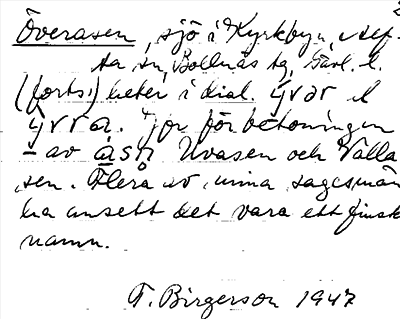 2
Överasen, sjö i Kyrkbyn, Alf-
ta sn, Bollnäs tg, Gävl. l.
(forts.) heter i dial. ȳvər l
ȳvra. Jor förbetoningen
– av åsn Uvasen och Valla
sen. Flera av mina sagesmän
ha ansett det vara ett finsk
namn.
T. Birgerson 1947